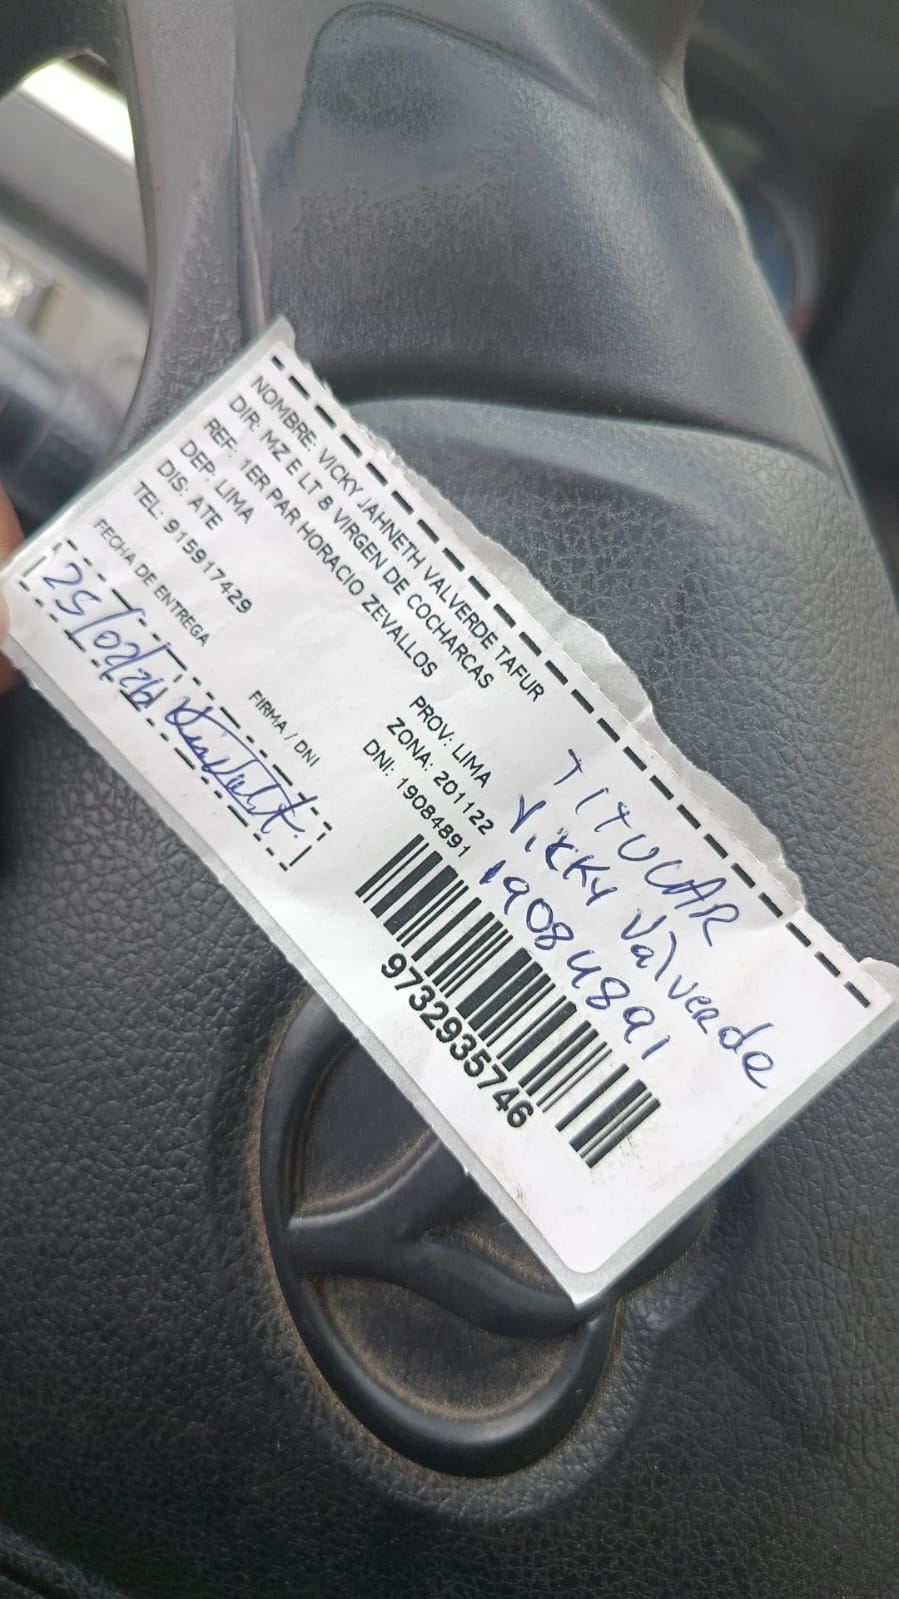 NOMBRE: VICKY JAHNETH VALVERDE TAFUR
DIR: MZ E LT 8 VIRGEN DE COCHARCAS
REF: 1ER PAR HORACIO ZEVALLOS
DEP: LIMA
PROV: LIMA
DIS: ATE
ZONA: 201122
TEL: 915917429
DNI: 19084891
FECHA DE ENTREGA
FIRMA / DNI
25/02/26
TITULAR
Vicky Valverde
19084891
9732935746